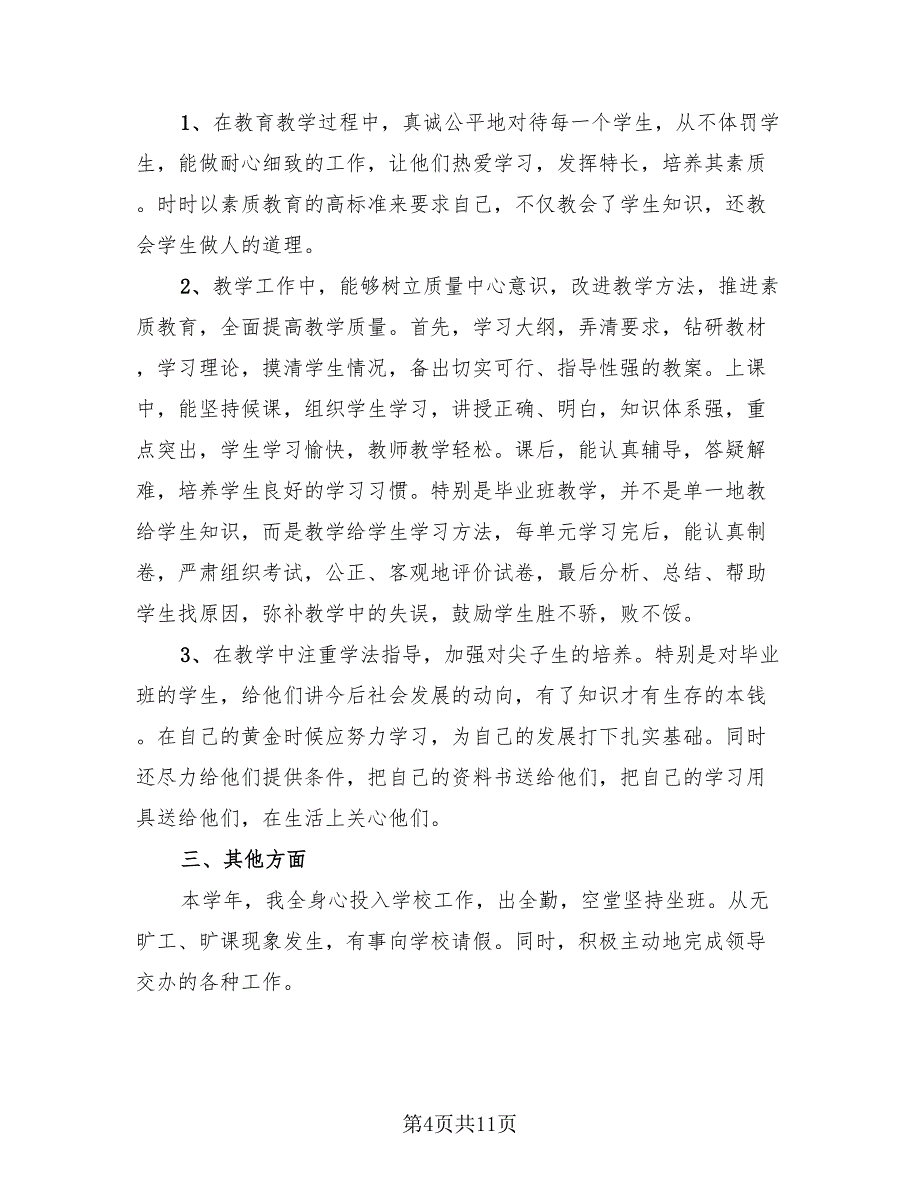 1、在教育教学过程中，真诚公平地对待每一个学生，从不体罚学
生，能做耐心细致的工作，让他们热爱学习，发挥特长，培养其素质
。时时以素质教育的高标准来要求自己，不仅教会了学生知识，还教
会学生做人的道理。
2、教学工作中，能够树立质量中心意识，改进教学方法，推进素
质教育，全面提高教学质量。首先，学习大纲，弄清要求，钻研教材
，学习理论，摸清学生情况，备出切实可行、指导性强的教案。上课
中，能坚持候课，组织学生学习，讲授正确、明白，知识体系强，重
点突出，学生学习愉快，教师教学轻松。课后，能认真辅导，答疑解
难，培养学生良好的学习习惯。特别是毕业班教学，并不是单一地教
给学生知识，而是教学给学生学习方法，每单元学习完后，能认真制
卷，严肃组织考试，公正、客观地评价试卷，最后分析、总结、帮助
学生找原因，弥补教学中的失误，鼓励学生胜不骄，败不馁。
3、在教学中注重学法指导，加强对尖子生的培养。特别是对毕业
班的学生，给他们讲今后社会发展的动向，有了知识才有生存的本钱
。在自己的黄金时候应努力学习，为自己的发展打下扎实基础。同时
还尽力给他们提供条件，把自己的资料书送给他们，把自己的学习用
具送给他们，在生活上关心他们。
三、其他方面
本学年，我全身心投入学校工作，出全勤，空堂坚持坐班。从无
旷工、旷课现象发生，有事向学校请假。同时，积极主动地完成领导
交办的各种工作。
第4页共11页